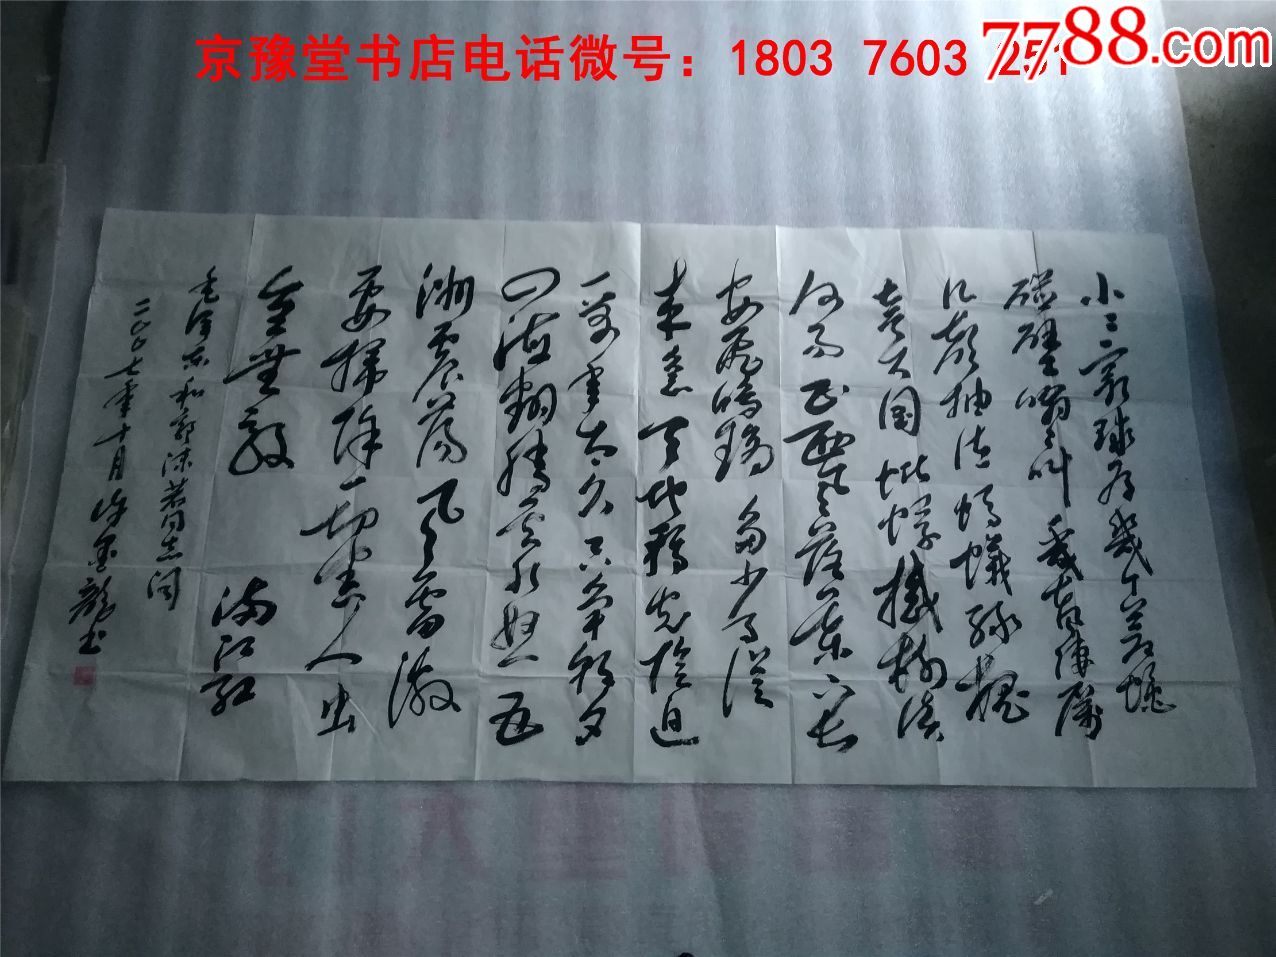 京豫堂书店电话微号：1803 7603 251
7788.com
小小寰球有几个苍蝇
碰壁嗡嗡叫几声凄厉
几声抽泣蚂蚁缘槐
夸大国蚍蜉撼树谈
何易正西风落葉下长
安飞鸣镝多少事从
来急天地转光阴迫
一万年太久只争朝夕
四海翻腾云水怒五
洲震荡风雷激
要扫除一切害人虫
全無敌 满江红
毛泽东和郭沫若同志词
二〇〇七年十月 金龙书